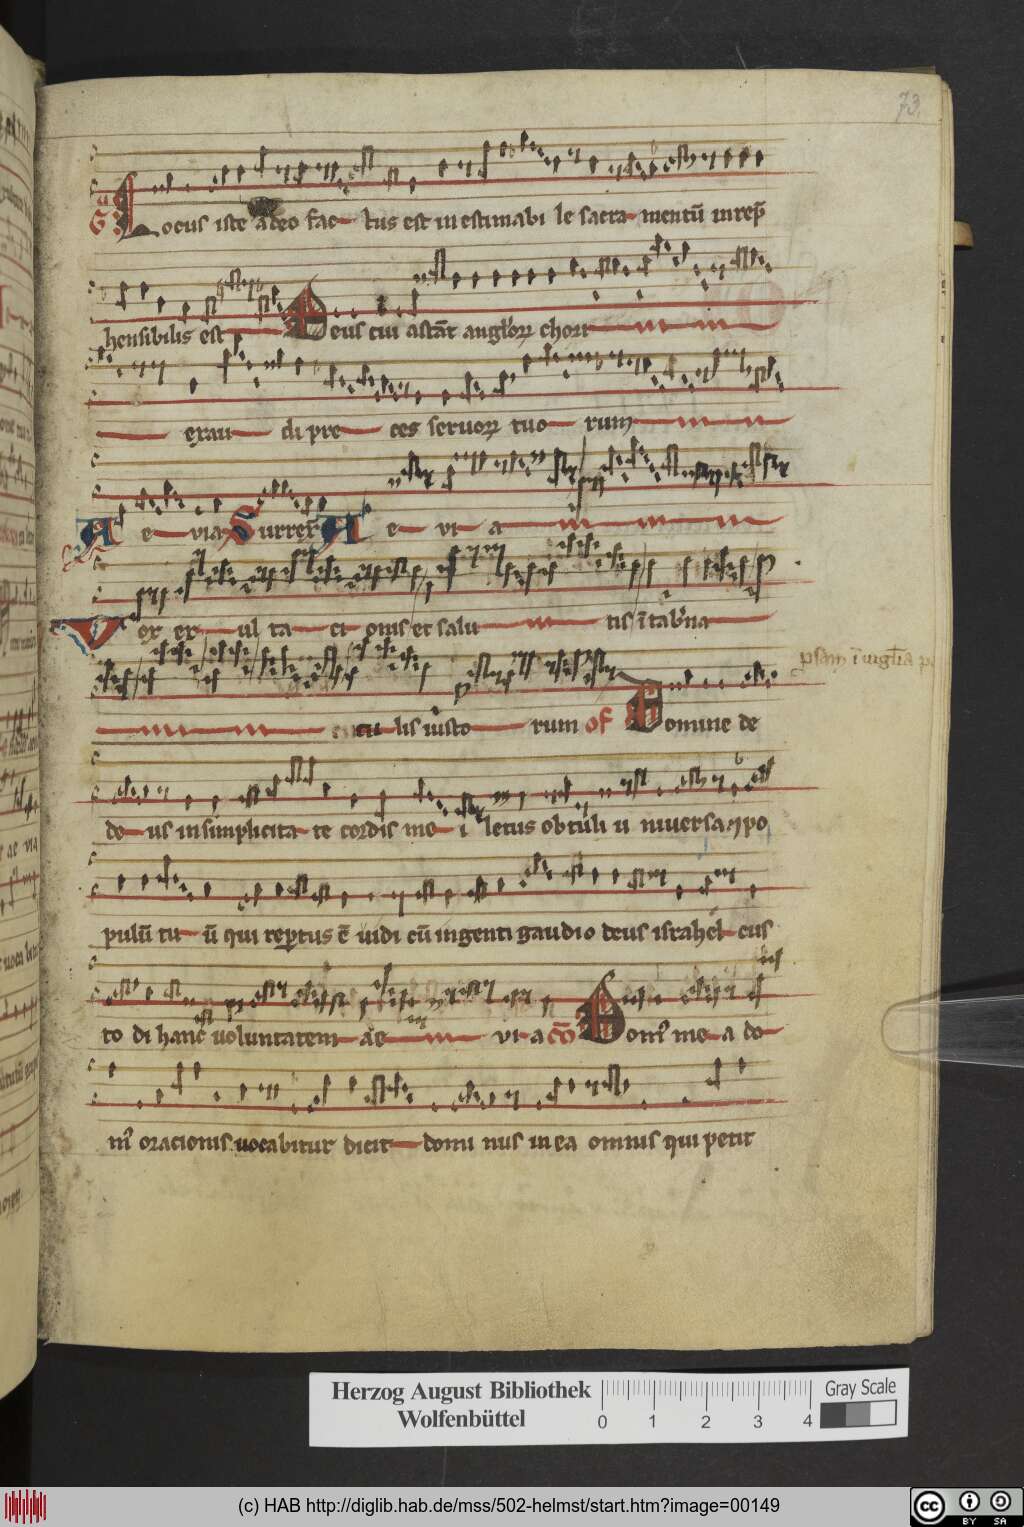 73
Gͣ Locus iste a deo fac tus est in estimabi le sacra mentū inrep̄
hensibilis est Deus cui astāt angl'orꝝ chori
exau di pre ces seruorꝝ tuo rum
A e via Surrex̄ A e vi a
V ox ex ul ta ci onis et salu tis ī tab'na
cu lis iusto rum of Domine de
psalm ī uigl'ia
do us in simplicita te cordis me i letus obtuli u niuersa ⁊ po
pulū tu ū qui rep̱tus ē uidi cū ingenti gaudio deus israhel cus
to di hanc uoluntatem ae vi a cō Dom' me a do
m' oracionis uocabitur dicit domi nus in ea omnis qui petit
Herzog August Bibliothek
Wolfenbüttel
0 1 2 3 4
Gray Scale
(c) HAB http://diglib.hab.de/mss/502-helmst/start.htm?image=00149
cc BY SA